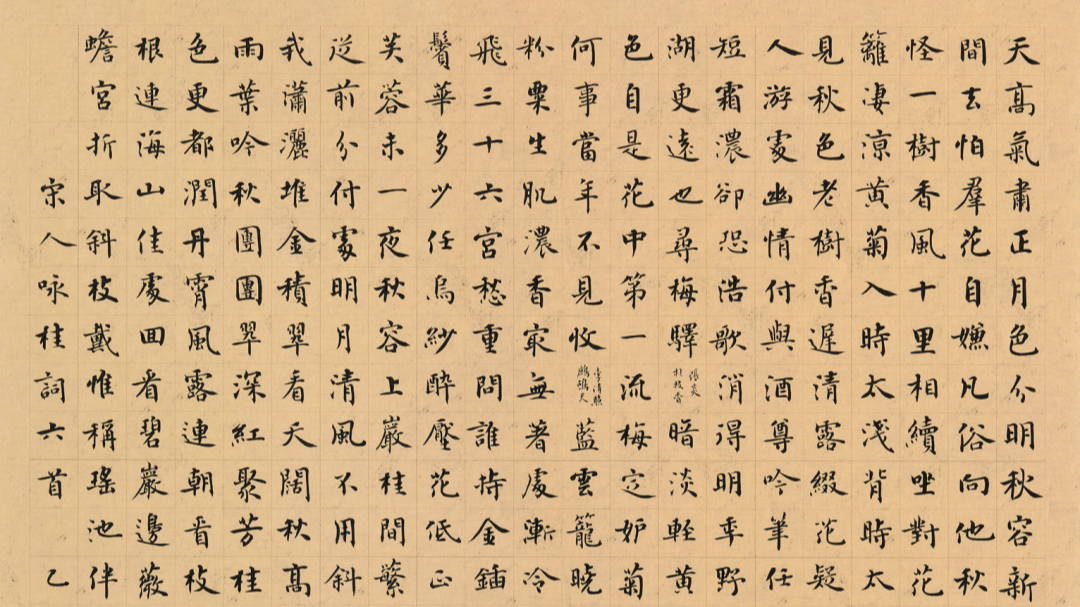 天高氣肅正月色分明秋容新
間去怕羣花自嫌凡俗向他秋
怪一樹香風十里相續坐對花
籬凄涼黄菊入時太淺背時太
見秋色老樹香遲清露綴花疑
人游處幽情付與酒尊吟筆任
短霜濃卻恐浩歌消得明年野
湖更遠也尋梅驛張炎桂枝香暗淡輕黄
色自是花中第一流梅定妒菊
何事當年不見收李清照鷓鴣天藍雲籠曉
粉粟生肌濃香最無著處漸冷
飛三十六宮愁重問誰持金鍤
鬢華多少任烏紗醉壓花低正
芙蓉未一夜秋容上巖桂間繁
從前分付處明月清風不用斜
我瀟灑堆金積翠看天闊秋高
雨葉吟秋團團翠深紅聚芳桂
色更都潤丹霄風露連朝看枝
根連海山佳處回看碧巖邊薇
蟾宮折取斜枝戴惟稱瑤池伴
宋人咏桂詞六首乙